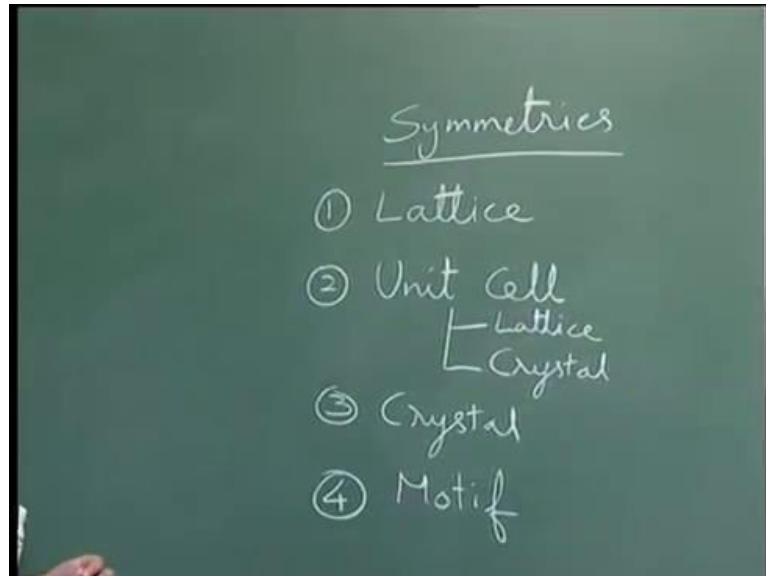 Symmetries
① Lattice
② Unit Cell
Lattice
Crystal
③ Crystal
④ Motif